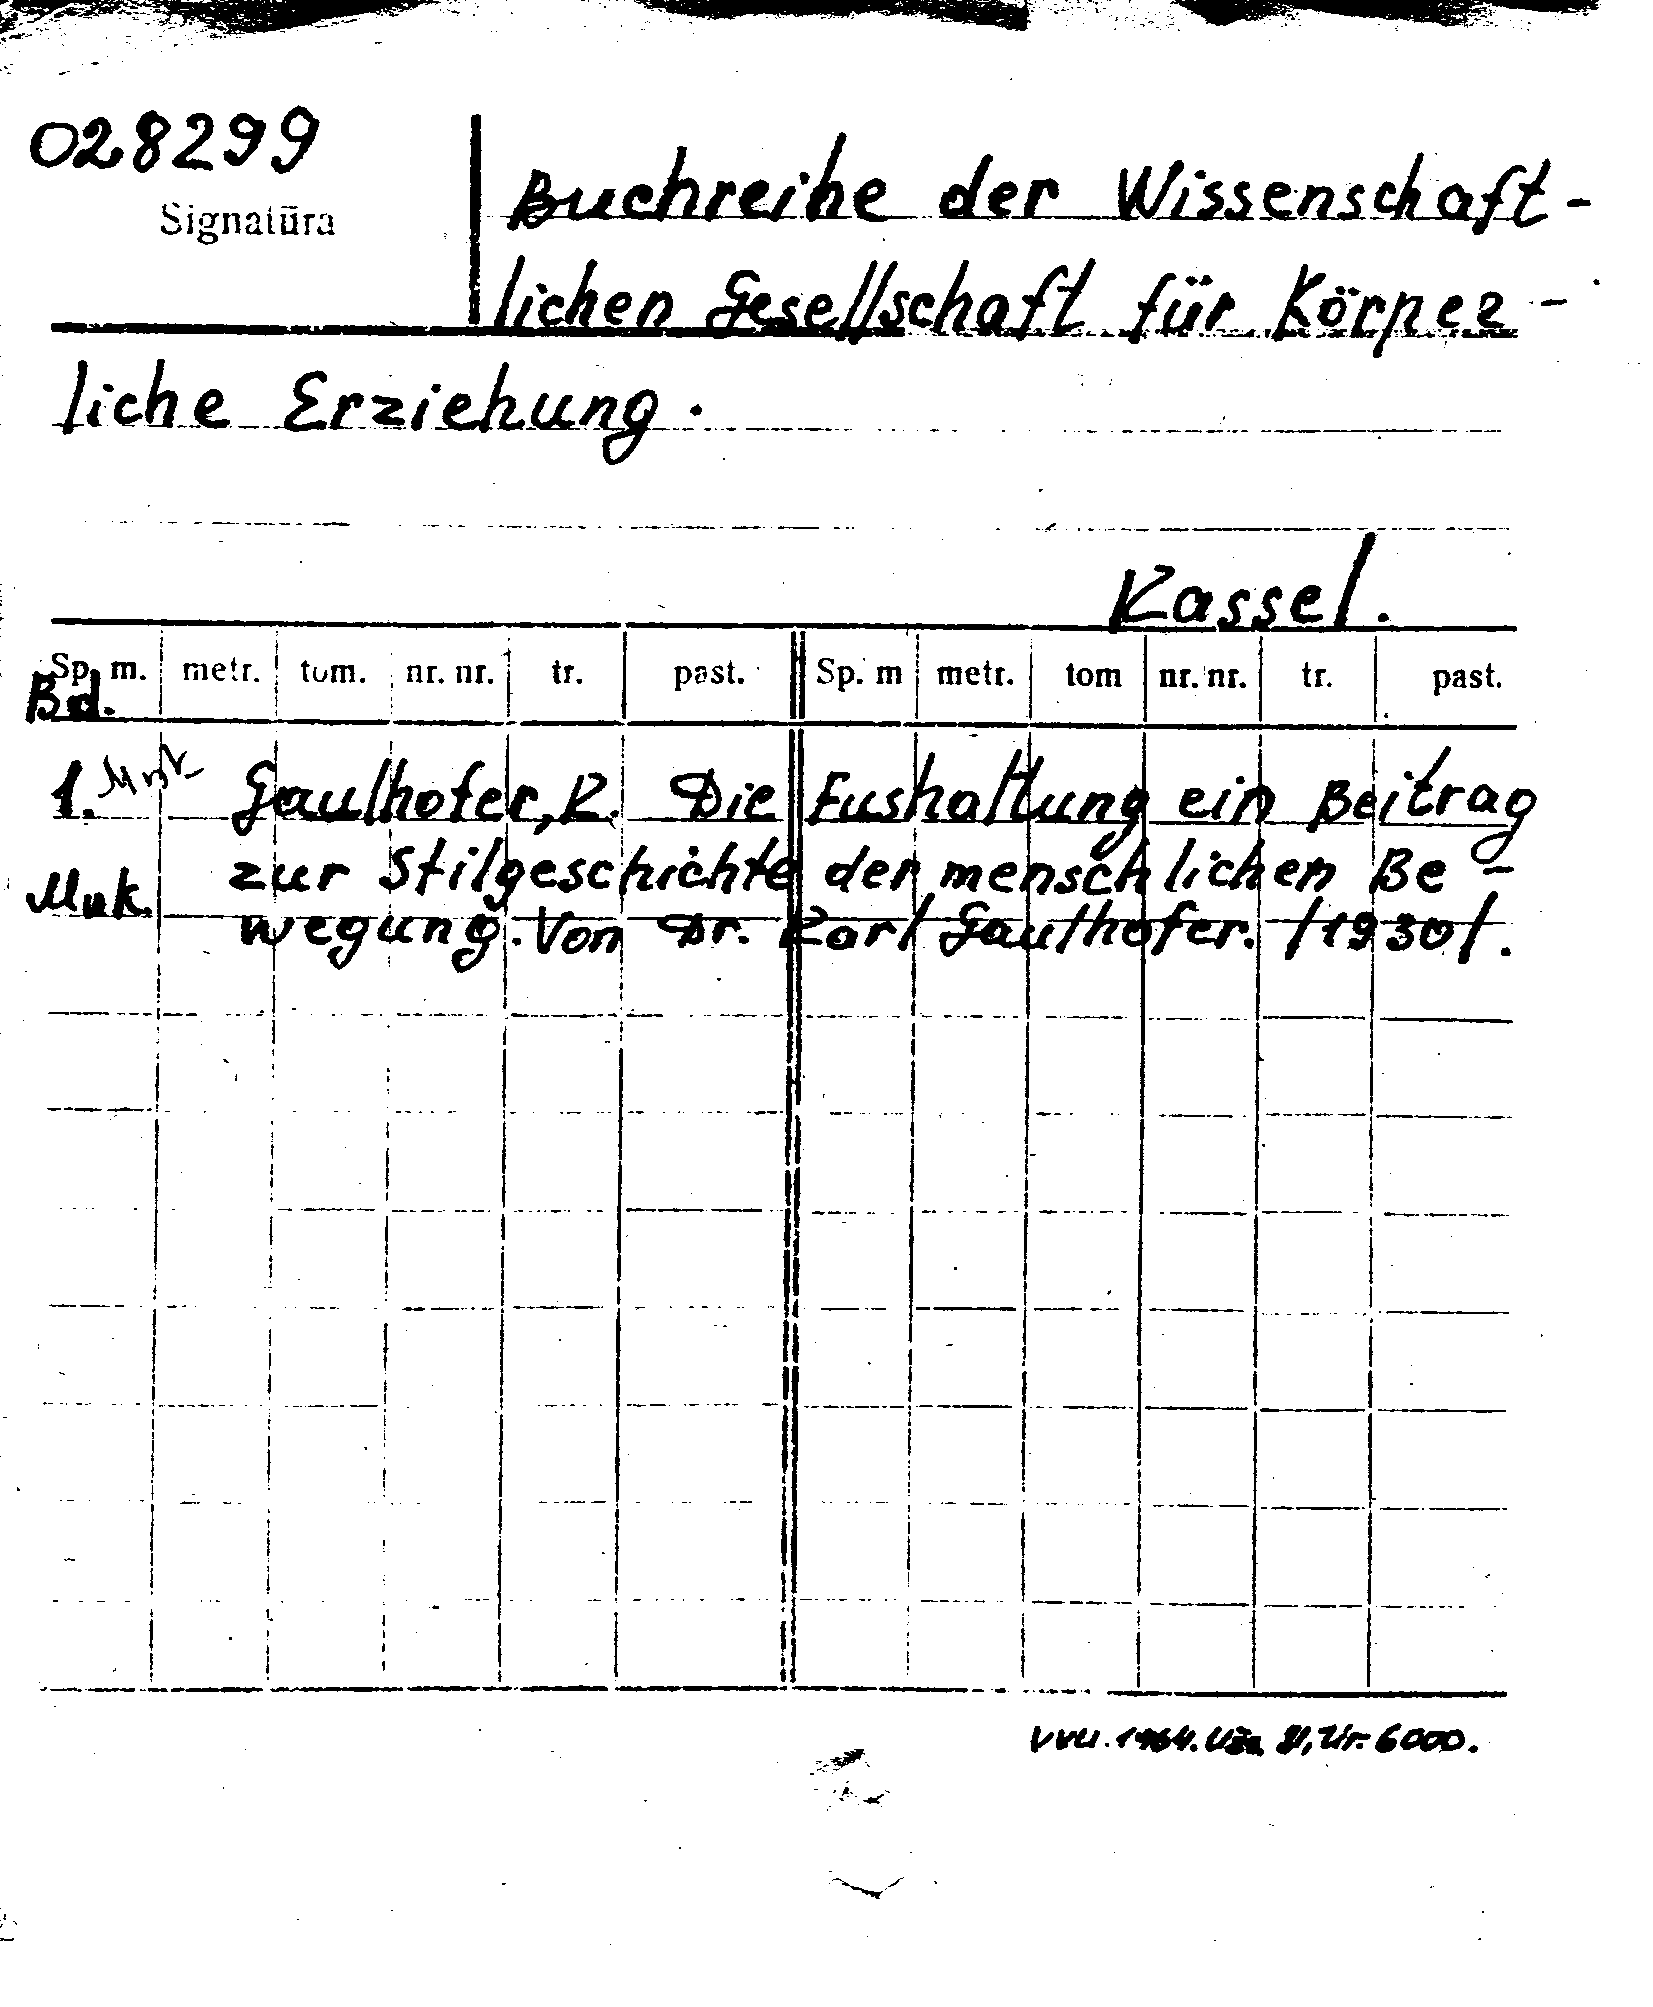 028299
Signatūra
Buchreihe der Wissenschaft-
lichen Gesellschaft für Körper-
liche Erziehung.
Kassel.
Sp. m. metr. tom. nr. nr. tr. past. Sp. m metr. tom nr. nr. tr. past.
Bd.
1. Mnk Gaulhofer, K. Die Fushaltung ein Beitrag
zur Stilgeschichte der menschlichen Be-
Mnk.
wegung. Von Dr. Karl Gaulhofer. /1930/.
VVU. 1964. Už. 81, tir. 6000.